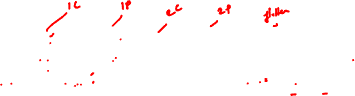 1C 1P 2C 2P